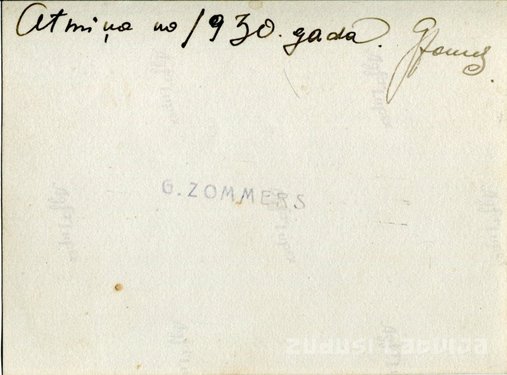 Atmiņa no 1930. gada.
G. ZOMMERS
zudusi latvija